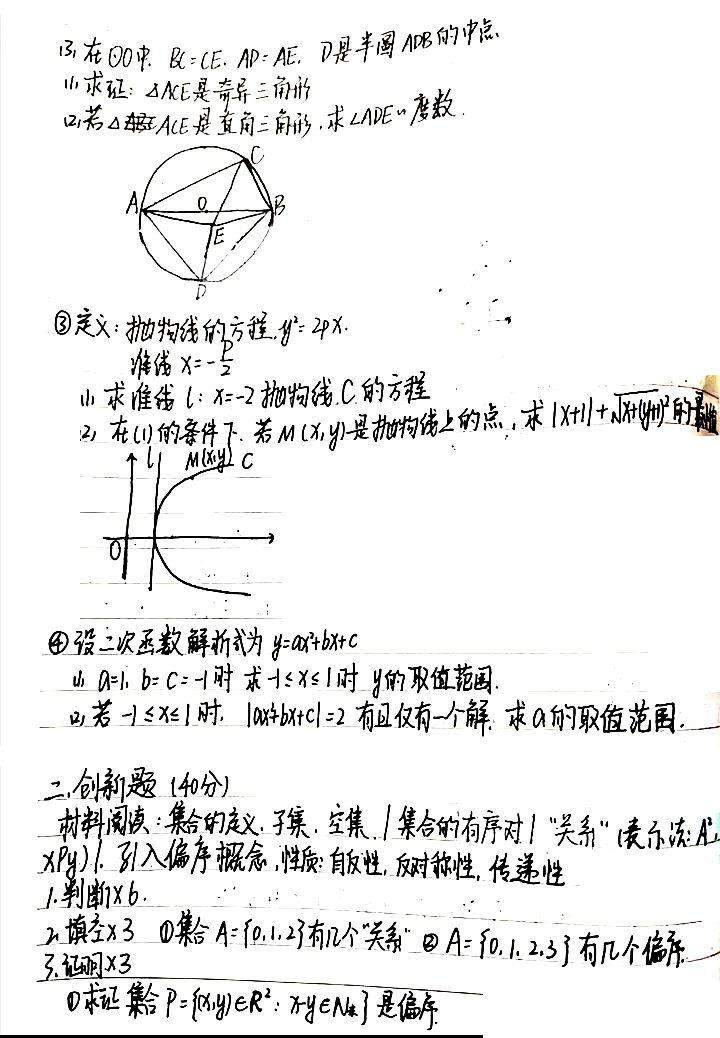 (3), 在⊙O中. BC=CE. AD=AE. D是半圆ADB的中点.
(1) 求证: △ACE是奇异三角形
(2), 若△ACE是直角三角形. 求∠ADE的度数.
C
A O B
E
D
③定义: 抛物线的方程. y²=2px.
准线 x=-p/2
(1) 求准线 l: x=-2 抛物线.C.的方程
(2), 在(1)的条件下. 若M(x,y)是抛物线上的点, 求|x+1|+√x+(y+1)²的最值
l M(x,y) C
O
④设二次函数解析式为 y=ax²+bx+c
(1), a=1, b=c=-1时 求-1≤x≤1时 y的取值范围.
(2), 若 -1≤x≤1时. |ax²+bx+c|=2 有且仅有一个解. 求a的取值范围.
二. 创新题 (40分)
材料阅读: 集合的定义. 子集. 空集. | 集合的有序对 | "关系" (表示法: A²,
xPy) |. 引入偏序概念, 性质: 自反性, 反对称性, 传递性
1. 判断×6.
2. 填空×3 ①集合A={0.1.2}有几个"关系" ② A={0.1.2.3}有几个偏序.
3. 证明×3
①求证 集合 P={(x,y)∈R²: x-y∈N*} 是偏序.